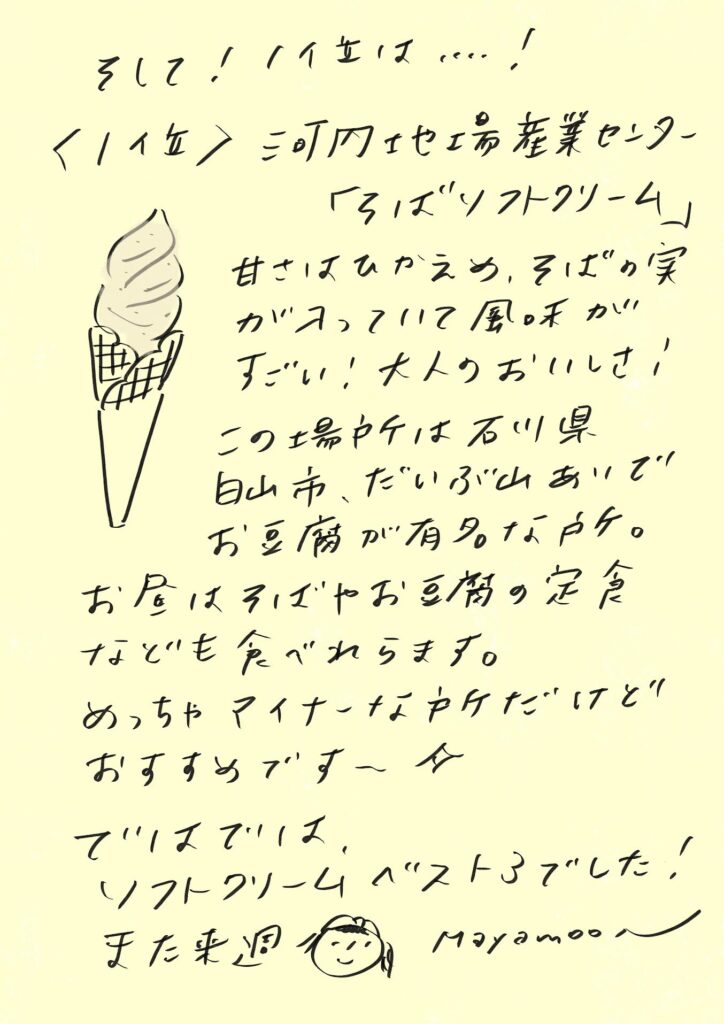 そして！1位は‥‥！
〈1位〉河内地場産業センター
「そばソフトクリーム」
甘さはひかえめ、そばの実
が入っていて風味が
すごい！大人のおいしさ！
この場所は石川県
白山市、だいぶ山あいで
お豆腐が有名な所。
お昼はそばやお豆腐の定食
なども食べれらます。
めっちゃマイナーな所だけど
おすすめです〜☆
ではでは、
ソフトクリームベスト3でした！
また来週
Mayamoon